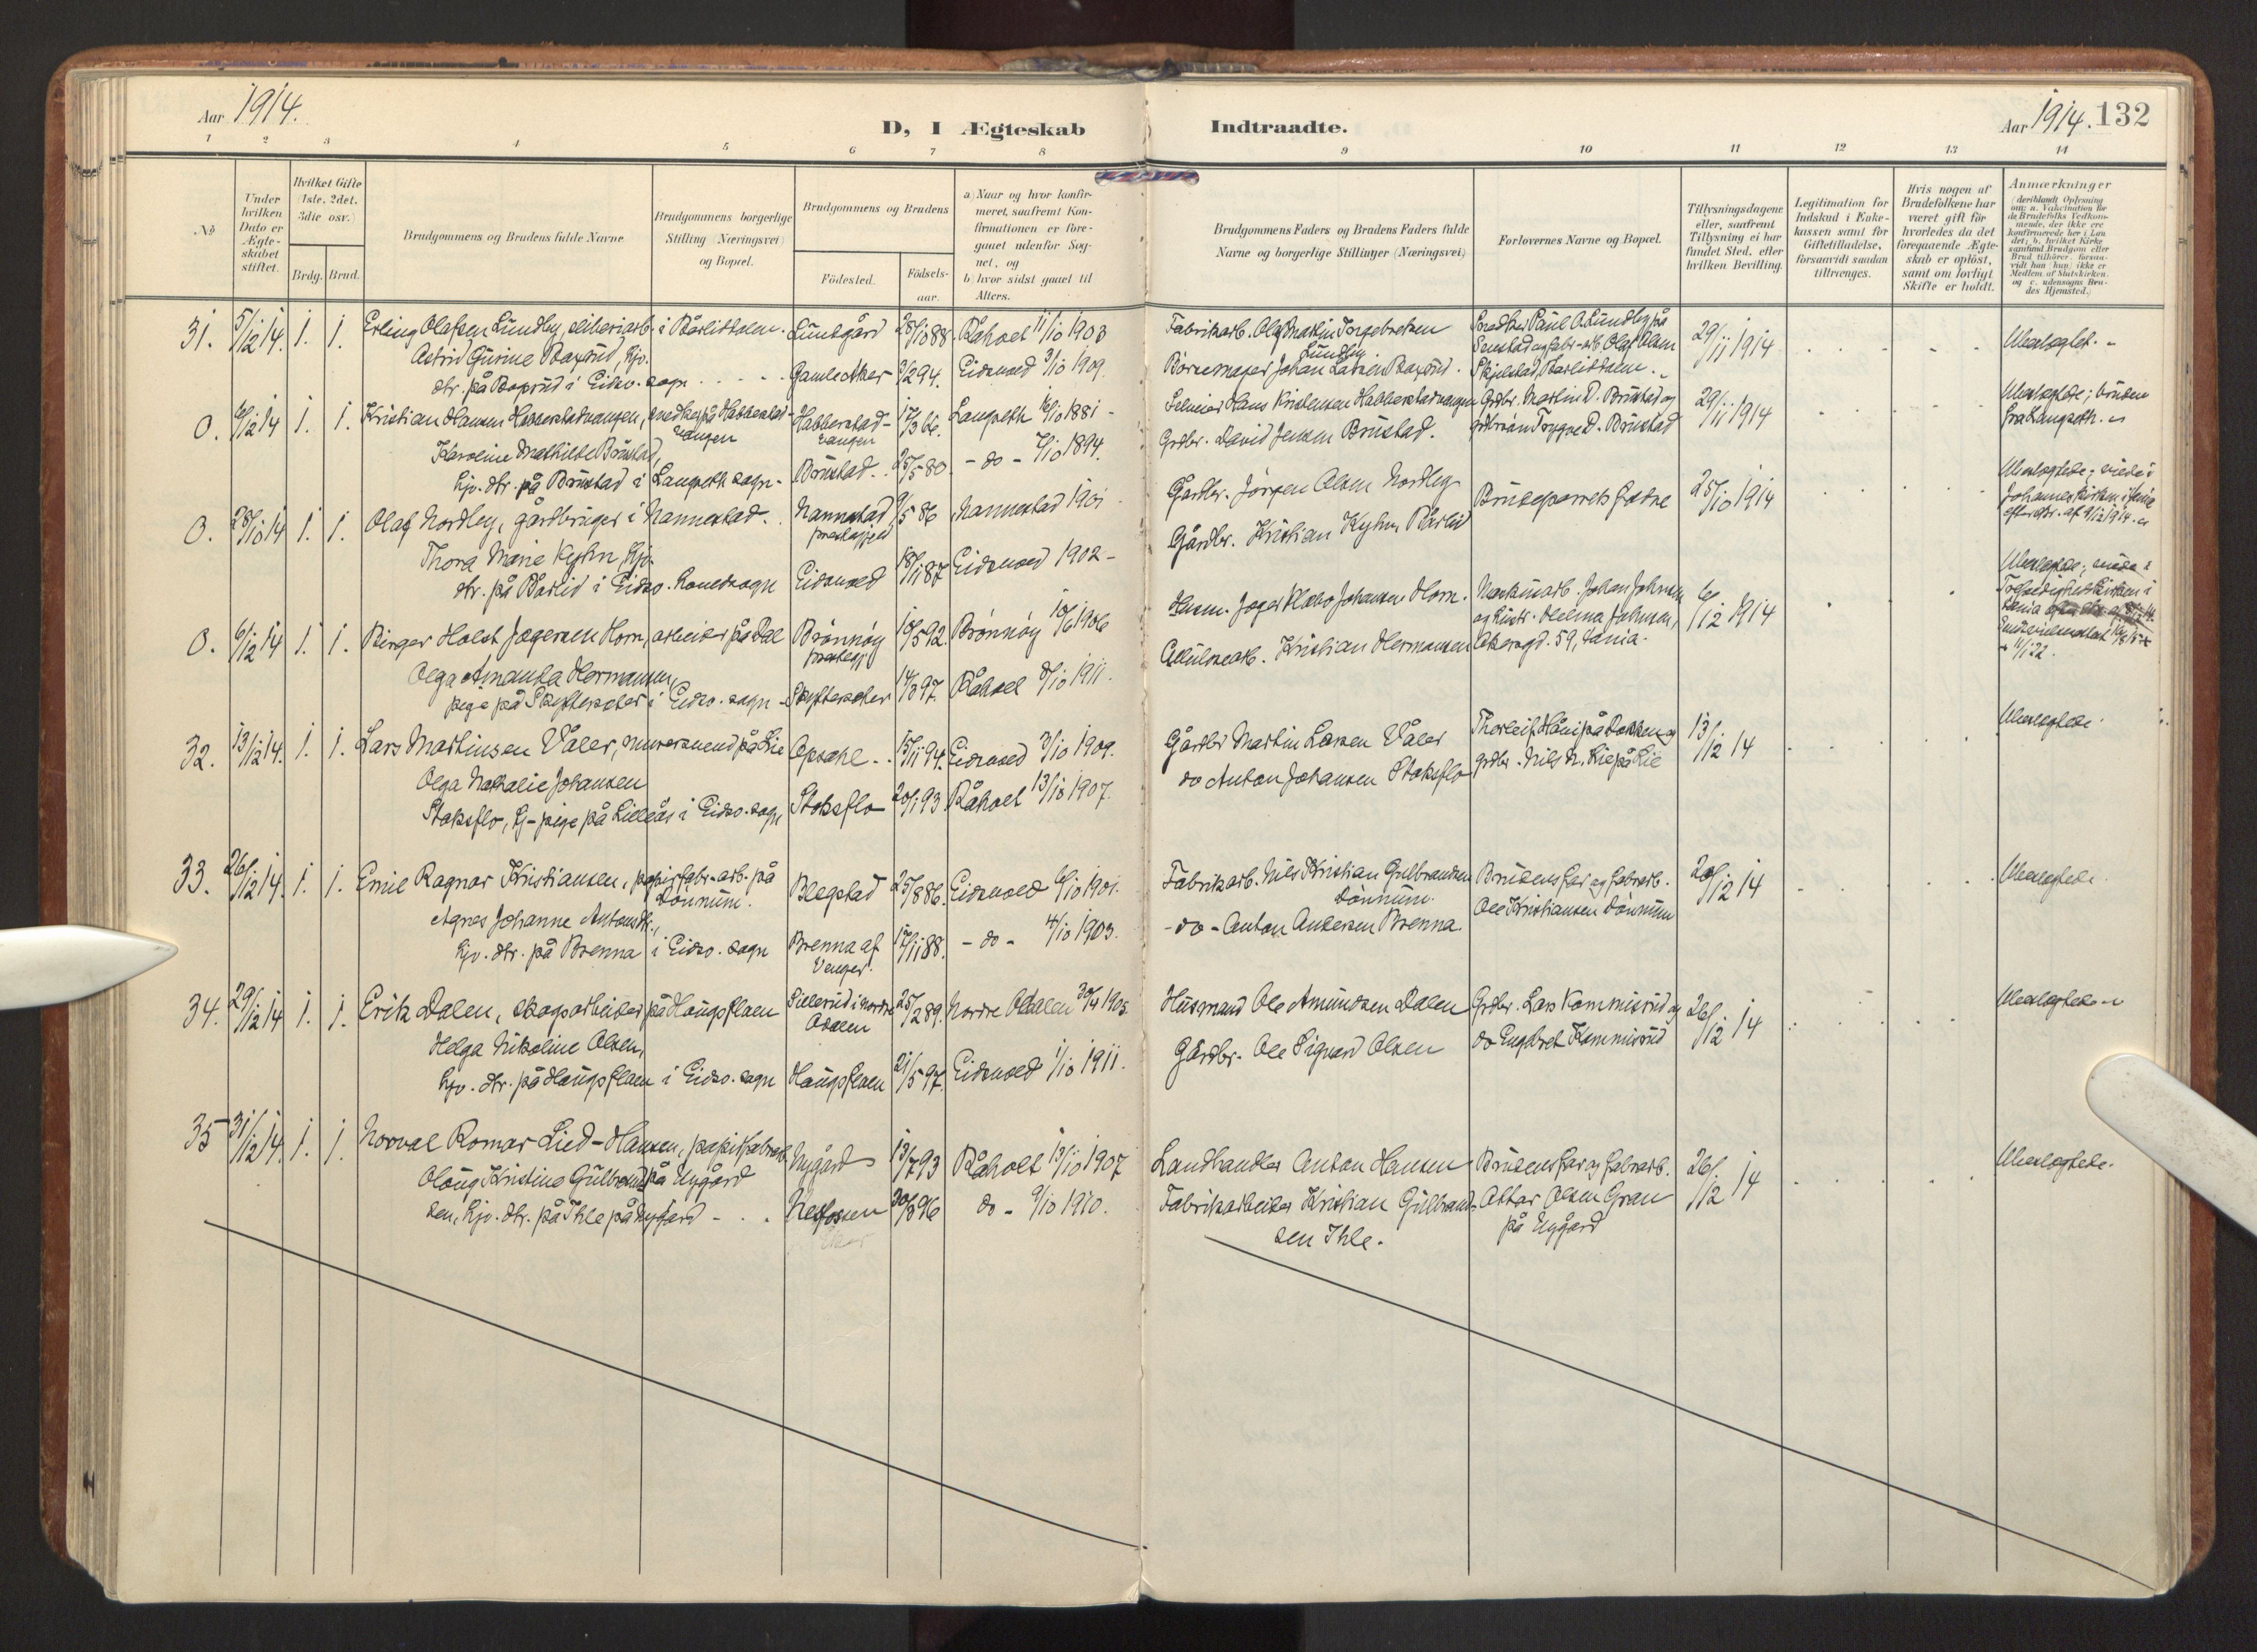 Aar 1914.
D, I Ægteskab Indtraadte.
Aar 1914. 132
1 2 3 4 5 6 7 8 9 10 11 12 13 14
No
Under hvilken Dato er Ægteskabet stiftet.
Hvilket Gifte (1ste, 2det, 3die osv.)
Brdg. Brud.
Brudgommens og Brudens fulde Navne
Brudgommens borgerlige Stilling (Næringsvei) og Bopæl.
Brudgommens og Brudens
Födested. Födselsaar.
a) Naar og hvor konfirmeret, saafremt Konfirmationen er foregaaet udenfor Sognet, og
b) hvor sidst gaaet til Alters.
Brudgommens Faders og Brudens Faders fulde Navne og borgerlige Stillinger (Næringsvei)
Forlovernes Navne og Bopæl.
Tillysningsdagene eller, saafremt Tillysning ei har fundet Sted, efter hvilken Bevilling.
Legitimation for Indskud i Enkekassen samt for Giftetilladelse, forsaavidt saadan tiltrænges.
Hvis nogen af Brudefolkene har været gift för hvorledes da det foregaaende Ægteskab er oplöst, samt om lovligt Skifte er holdt.
Anmærkninger (deriblandt Oplysning om: a. Vakcination for de Brudefolks Vedkommende, der ikke ere konfirmerede her i Landet; b. hvilket Kirkesamfund Brudgom eller Brud tilhører, forsaavidt han (hun) ikke er Medlem af Statskirken, og c. udensogns Brudes Hjemsted.)
31. 5/12 14. 1. 1. Erling Olafsen Lundby, sliberiarb. i Bårlidalen. Lundgård 25/10 88 Råholt 11/10 1903
Fabrikarb. Olaf Martin Ingebretsen Lundby Snedker Paul O. Lundby på 29/11 1914
Astrid Gurine Baxrud, hjv.
dtr. på Baxrud i Eidsv. sogn Gamle Aker 3/2 94. Eidsvold 3/10 1909.
Børsemager Johan Larsen Baxrud.
0. 6/12 14 1. 1. Kristian Hansen Habberstadvangen, snedker på Habberstadvangen Habberstadvangen 17/3 66. Langseth 16/10 1881
Selveier Hans Kristensen Habberstadvangen Grdbr. Martin D. Brustad og grdbr. søn Trygve D. Brustad 29/11 1914 Ulovlagtede; bruden fra Langseth.
Karoline Mathilde Brustad,
hjv. dtr. på Brustad i Langseth sogn Brustad 25/5 80. - do - 7/10 1894.
Grdbr. David Jensen Brustad.
0. 25/10 14 1. 1. Olaf Nordby, gårdbruger i Nannestad. Nannestad prestegjeld 9/5 86 Nannestad 1901
Gårdbr. Jørgen Olsen Nordby Brudeparrets fædre 25/10 1914
Thora Marie Kyhn, hjv.
dtr. på Bårlid i Eidsv. hovedsogn Eidsvold 18/11 87 Eidsvold 1902
Gårdbr. Kristian Kyhn Bårlid
0. 6/12 14 1. 1. Birger Holst Jægersen Horn, arbeider på Dal Brønnøy prestegj. 10/5 92. Brønnøy 10/6 1906
Maskinarb. Johan Johnsen 6/12 1914
Olga Amanda Hermansen,
pige på Skytterseter i Eidsv. sogn Skytterseter 14/3 97. Råholt 8/10 1911.
Kristian Hermansen
32. 13/12 14. 1. 1. Lars Martinsen Våler, murersvend på Lie Opsahl 15/11 94. Eidsvold 3/10 1909.
Gårdbr Martin Larsen Våler grdbr. Nils N. Lie på Lie 13/12 14
Olga Nathalie Johansen
Stoksflo, hj-pige på Lilleås i Eidsv. sogn Stoksflo 20/1 93 Råholt 13/10 1907.
do Anton Johansen Stoksflo
33. 26/12 14. 1. 1. Emil Ragnar Kristiansen, papirfabr.-arb. på Dønnum. Blegstad 25/8 86. Eidsvold 6/10 1901.
Fabrikarb. Nils Kristian Gulbrandsen Dønnum Brudens far og fabrarb. Ole Kristiansen Dønnum 20/12 14
Agnes Johanne Antonsdtr.,
hjv. dtr. på Brenna i Eidsv. sogn Brenna af Venger. 17/11 88. - do - 4/10 1903.
- do - Anton Andersen Brenna.
34. 29/12 14 1. 1. Erik Dalen, skogsarbeider på Haugsflaen Sillerud i nordre Odalen 25/2 89. Nordre Odalen 30/4 1905.
Husmand Ole Amundsen Dalen Grdbr. Lars Kommisrud og do Engebret Kommisrud 26/12 14
Helga Nikoline Olsen,
hjv. dtr. på Haugsflaen i Eidsv. sogn Haugsflaen 21/5 97. Eidsvold 1/10 1911.
Gårdbr. Ole Sigvard Olsen
35 31/12 14. 1. 1. Norval Romar Lied-Hansen, papirfabrarb. på Nygård Nygård 13/7 93 Råholt 13/10 1907
Landhandler Anton Hansen Brudens far og fabrarb. Ottar Olsen Gran på Nygård 26/12 14
Olaug Kristine Gulbrandsen, hjv. dtr. på Ihle på Nygård Nesfossen 20/8 96 do - 9/10 1910.
Fabrikarbeider Kristian Gulbrandsen Ihle.